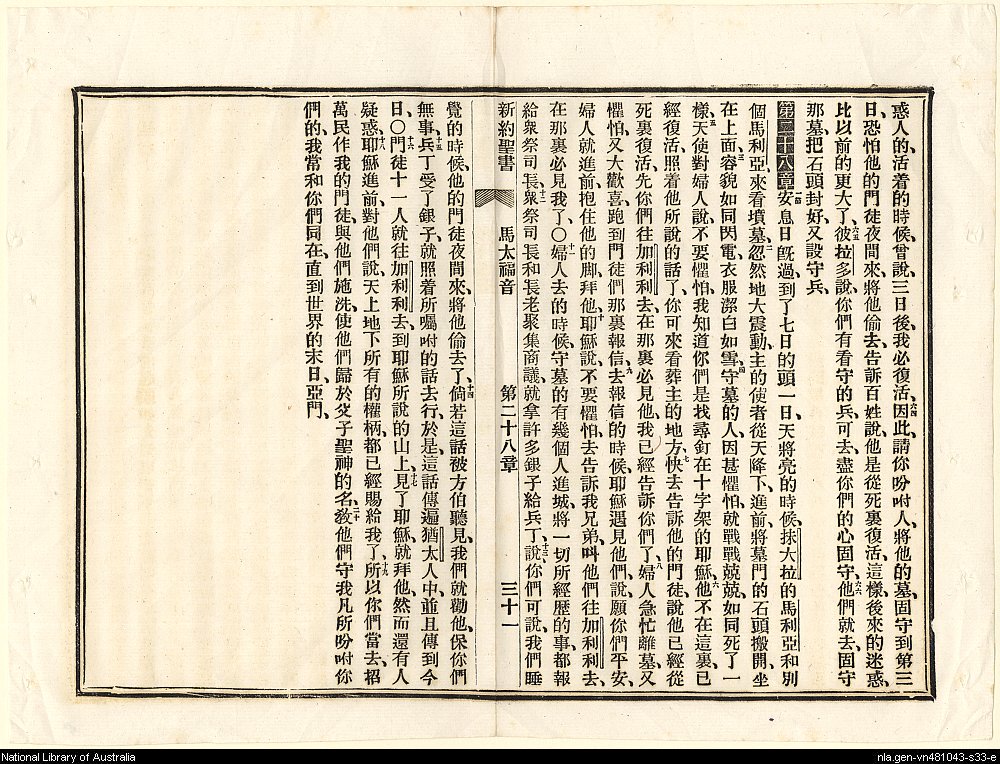 惑人的、活着的時候、曾說、三日後、我必復活、六四因此、請你吩咐人、將他的墓、固守到第三
日、恐怕他的門徒夜間來、將他偷去、告訴百姓說、他是從死裏復活、這樣、後來的迷惑、
比以前的更大了、六五彼拉多說、你們有看守的兵、可去盡你們的心固守、六六他們就去、固守
那墓、把石頭封好、又設守兵、
第二十八章一安息日旣過、到了七日的頭一日、天將亮的時候、抹大拉的馬利亞、和別
個馬利亞、來看墳墓、二忽然地大震動、主的使者從天降下、進前將墓門的石頭搬開、坐
在上面、三容貌如同閃電、衣服潔白如雪、四守墓的人、因甚懼怕、就戰戰兢兢、如同死了一
樣、五天使對婦人說、不要懼怕、我知道你們是找尋釘在十字架的耶穌、六他不在這裏、已
經復活、照着他所說的話了、你可來看葬主的地方、七快去告訴他的門徒說、他已經從
死裏復活、先你們往加利利去、在那裏必見他、我已經告訴你們了、八婦人急忙離墓、又
懼怕、又大歡喜、跑到門徒們那裏報信、九去報信的時候、耶穌遇見他們、說、願你們平安、
婦人就進前、抱住他的脚拜他、十耶穌說、不要懼怕、去告訴我兄弟、呌他們往加利利去、
在那裏必見我了、〇十一婦人去的時候、守墓的有幾個人進城、將一切所經歷的事、都報
給衆祭司長、十二衆祭司長和長老聚集商議、就拿許多銀子給兵丁、十三說、你們可說、我們睡
新約聖書 馬太福音 第二十八章 三十一
覺的時候、他的門徒夜間來、將他偷去了、十四倘若這話被方伯聽見、我們就勸他、保你們
無事、十五兵丁受了銀子、就照着所囑咐的話去行、於是這話傳遍猶太人中、並且傳到今
日、〇十六門徒十一人、就往加利利去、到耶穌所說的山上、十七見了耶穌、就拜他、然而還有人
疑惑、十八耶穌進前、對他們說、天上地下所有的權柄、都已經賜給我了、十九所以你們當去、招
萬民作我的門徒、與他們施洗、使他們歸於父子聖神的名、二十敎他們守我凡所吩咐你
們的、我當和你們同在、直到世界的末日、亞門、
National Library of Australia
nla.gen-vn481043-s33-e